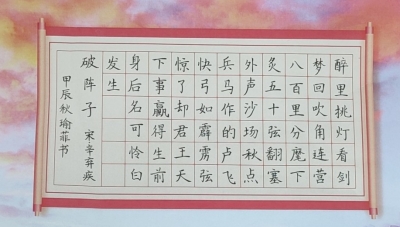 醉里挑灯看剑
梦回吹角连营
八百里分麾下
炙五十弦翻塞
外声沙场秋点
兵马作的卢飞
快弓如霹雳弦
惊了却君王天
下事赢得生前
身后名可怜白
发生
破阵子 宋辛弃疾
甲辰秋瑜菲书